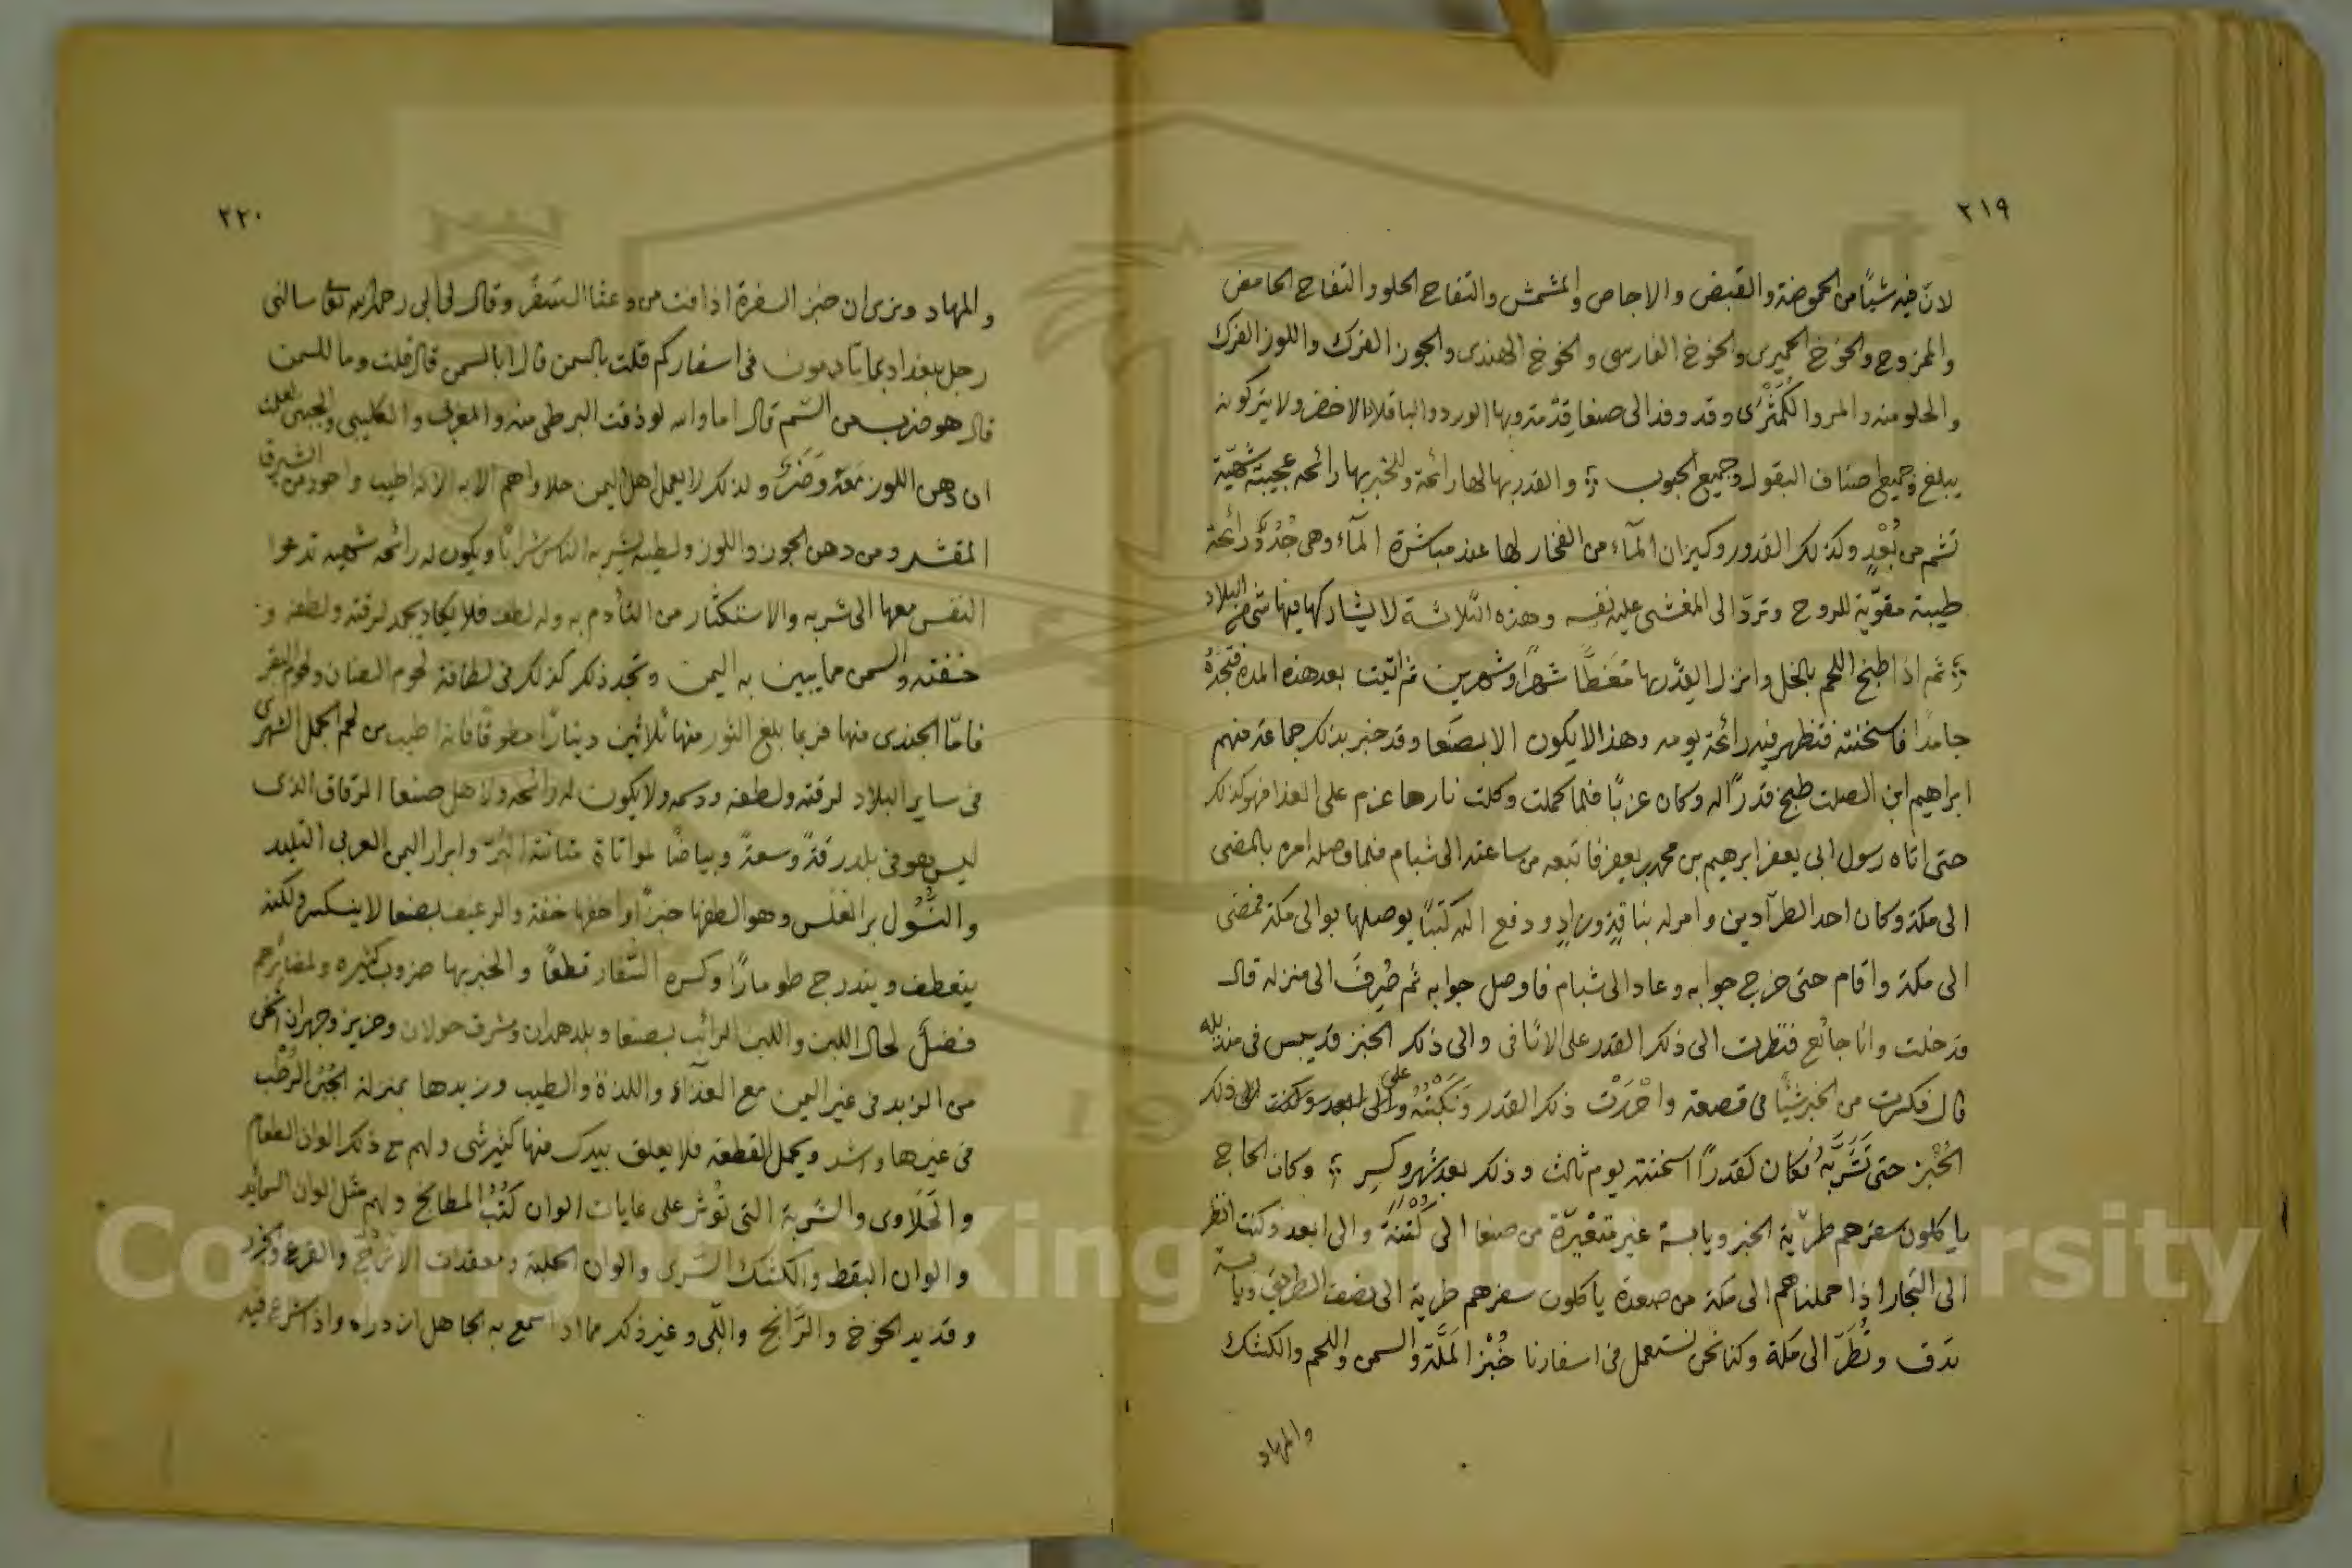 ٢١٩
لان فيه شيئاً من الحموضة والقبض والاجاص والمشمش والتفاح الحلو والتفاح الحامض
والممزوج والخوخ الحميرى والخوخ الفارسى والخوخ الهندى والجوز الفرك واللوز الفرك
والحلو منه والمر والكُمَّثْرَى وقد وفد الى صنعا وبها الورد والباقلا الاخضر ولا يتركونه
يبلغ وجميع اصناف البقول وجميع الحبوب والقدر بها لها رائحة وللخبر بها رائحه عجيبة شهيّة
تشم من بُعْدٍ وكذلك القدور وكيزان المآء من الفخار لها عند مباشرة المآء وهى جُدُدٌ رائحة
طيبة مقوّية للروح وتردّ الى المغشى عليه نفسه وهذه الثلاثة لا يشاركها فيها شى من البلاد
ثم اذا طبخ اللحم بالخل وانزل القدر بها مغَطًّا شهراً وشهرين ثم اتيت بعد هذه المدة فتجدُهُ
جامدا فاسخنته فتظهر فيه رائحة يومه وهذا لا يكون الا بصنعا وقد خبر بذلك جماعة منهم
ابراهيم ابن الصلت طبخ قدراً له وكان عزبًا فلما كملت وكلت نارها عزم على الغذا فهو كذلك
حتى اتاه رسول ابى يعفر ابرهيم بن محمد بن يعفر فاتبعه من ساعته الى شبام فلما وصله امره بالمضى
الى مكة وكان احد الطرآدين وامر له بناقة وزادٍ ودفع اليه كتبًا يوصلها بو الى مكة فمضى
الى مكة واقام حتى خرج جوابه وعاد الى شبام فاوصل جوابه ثم صُرِفَ الى منزله قال
فدخلت وانا جائع فنظرت الى ذلك القدر على الاثافى والى ذلك الخبز قد يبس فى منديله
قال فكسرت من الخبز شيئًا فى قصعة واحْدَرْت ذلك القدر وَنَكَبْتُهُ على ذلك
الخُبْز حتى تَشَرَّبَهُ فكان كقدرًا اسخنته يوم ثالث وذلك بعد شهر وكسر وكان الحاج
ياكلون سفرهم طريّة الخبز ويابسة غير متغيّرة من صنعا الى كُتْنَة والى ابعد وكنت انظر
الى التجار اذا حملناهم الى مكة من صعدة ياكلون سفرهم طرية الى نصف الطريق ويابسة
تدق وتُطَرّ الى مكة وكنا نحن نستعمل فى اسفارنا خُبْز المَلَّة والسمن واللحم والكشك
والمهاد
٢٢٠
والمهاد ونرى ان خبز السفرة اذا من وعثا السفر وقال لى ابى رحمه الله تعا سالنى
رجل ببغداد بما تأدمون فى اسفاركم قلت بالسمن قال ابا لسمن قال قلت وما للسمن
قال هو ضرب من السّم قال اما والله لو ذقت البرطى منه والمغربى والكليبى والجبنى لعلمت
ان دهن اللوز معه وضَرٌ ولذلك لا يعمل اهل اليمن حلاواهم الا به لانه اطيب واجود من الشيرق
المقشر ومن دهن الجوز واللوز ولطيبه يشربه الناس شراباً ويكون له رائحه شهيه تدعوا
النفس معها الى شربه والاستكثار من التأدم به وله لطف فلا يكاد يجمد لرقته ولطفه و
خفته والسمن مما يبين به اليمن وتجد ذلك كذلك فى لطافة لحوم الضان ولحوم البقر
فامّا الجندى منها فربما بلغ الثور منها ثلاثين دينارًا مطوقًا فانه اطيب من لحم الجمل الشهرى
فى ساير البلاد لرقته ولطفه ودسمه ولا يكون له رائحه ولاهل صنعا الرقاق الذى
ليس هو فى بلد رقةً وسعةً وبياضًا لمواتاة متانة البُرّ وابرار اليمن العربى التليد
والنُّسُول بر العلس وهو الطفها خبزاً واخفها خفة والرغيف بصنعا لا ينكسر ولكنه
ينعطف ويندرج طومارًا وكسره السّفار قطعًا والخبز بها ضروب كثيره
فضلَ لحال اللبن واللبن الرائب بصنعا وبلد همدان ومشرق خولان وحزيز وجهران اثخن
من الزبد فى غير اليمن مع الغذاء واللذة والطيب وزبدها بمنزلة الجُبْن الرُطب
فى غيرها واشد ويحمل القطعه فلا يعلق بيدك منها كثير شى ولهم مع ذلك الوان الطعام
والحَلَاوى والشربة التى تُوثر على غايات الوان كُتُبُ المطابخ ولهم مثل الوان السائد
والوان البقط والكشك السرى والوان الحلبة ومعقدات الاترُجّ والقرع والجزر
وقديد الخوخ والرَّانج وغير ذلك مما اذا سمع به الجاهل ازدراه واذا شرع فيه